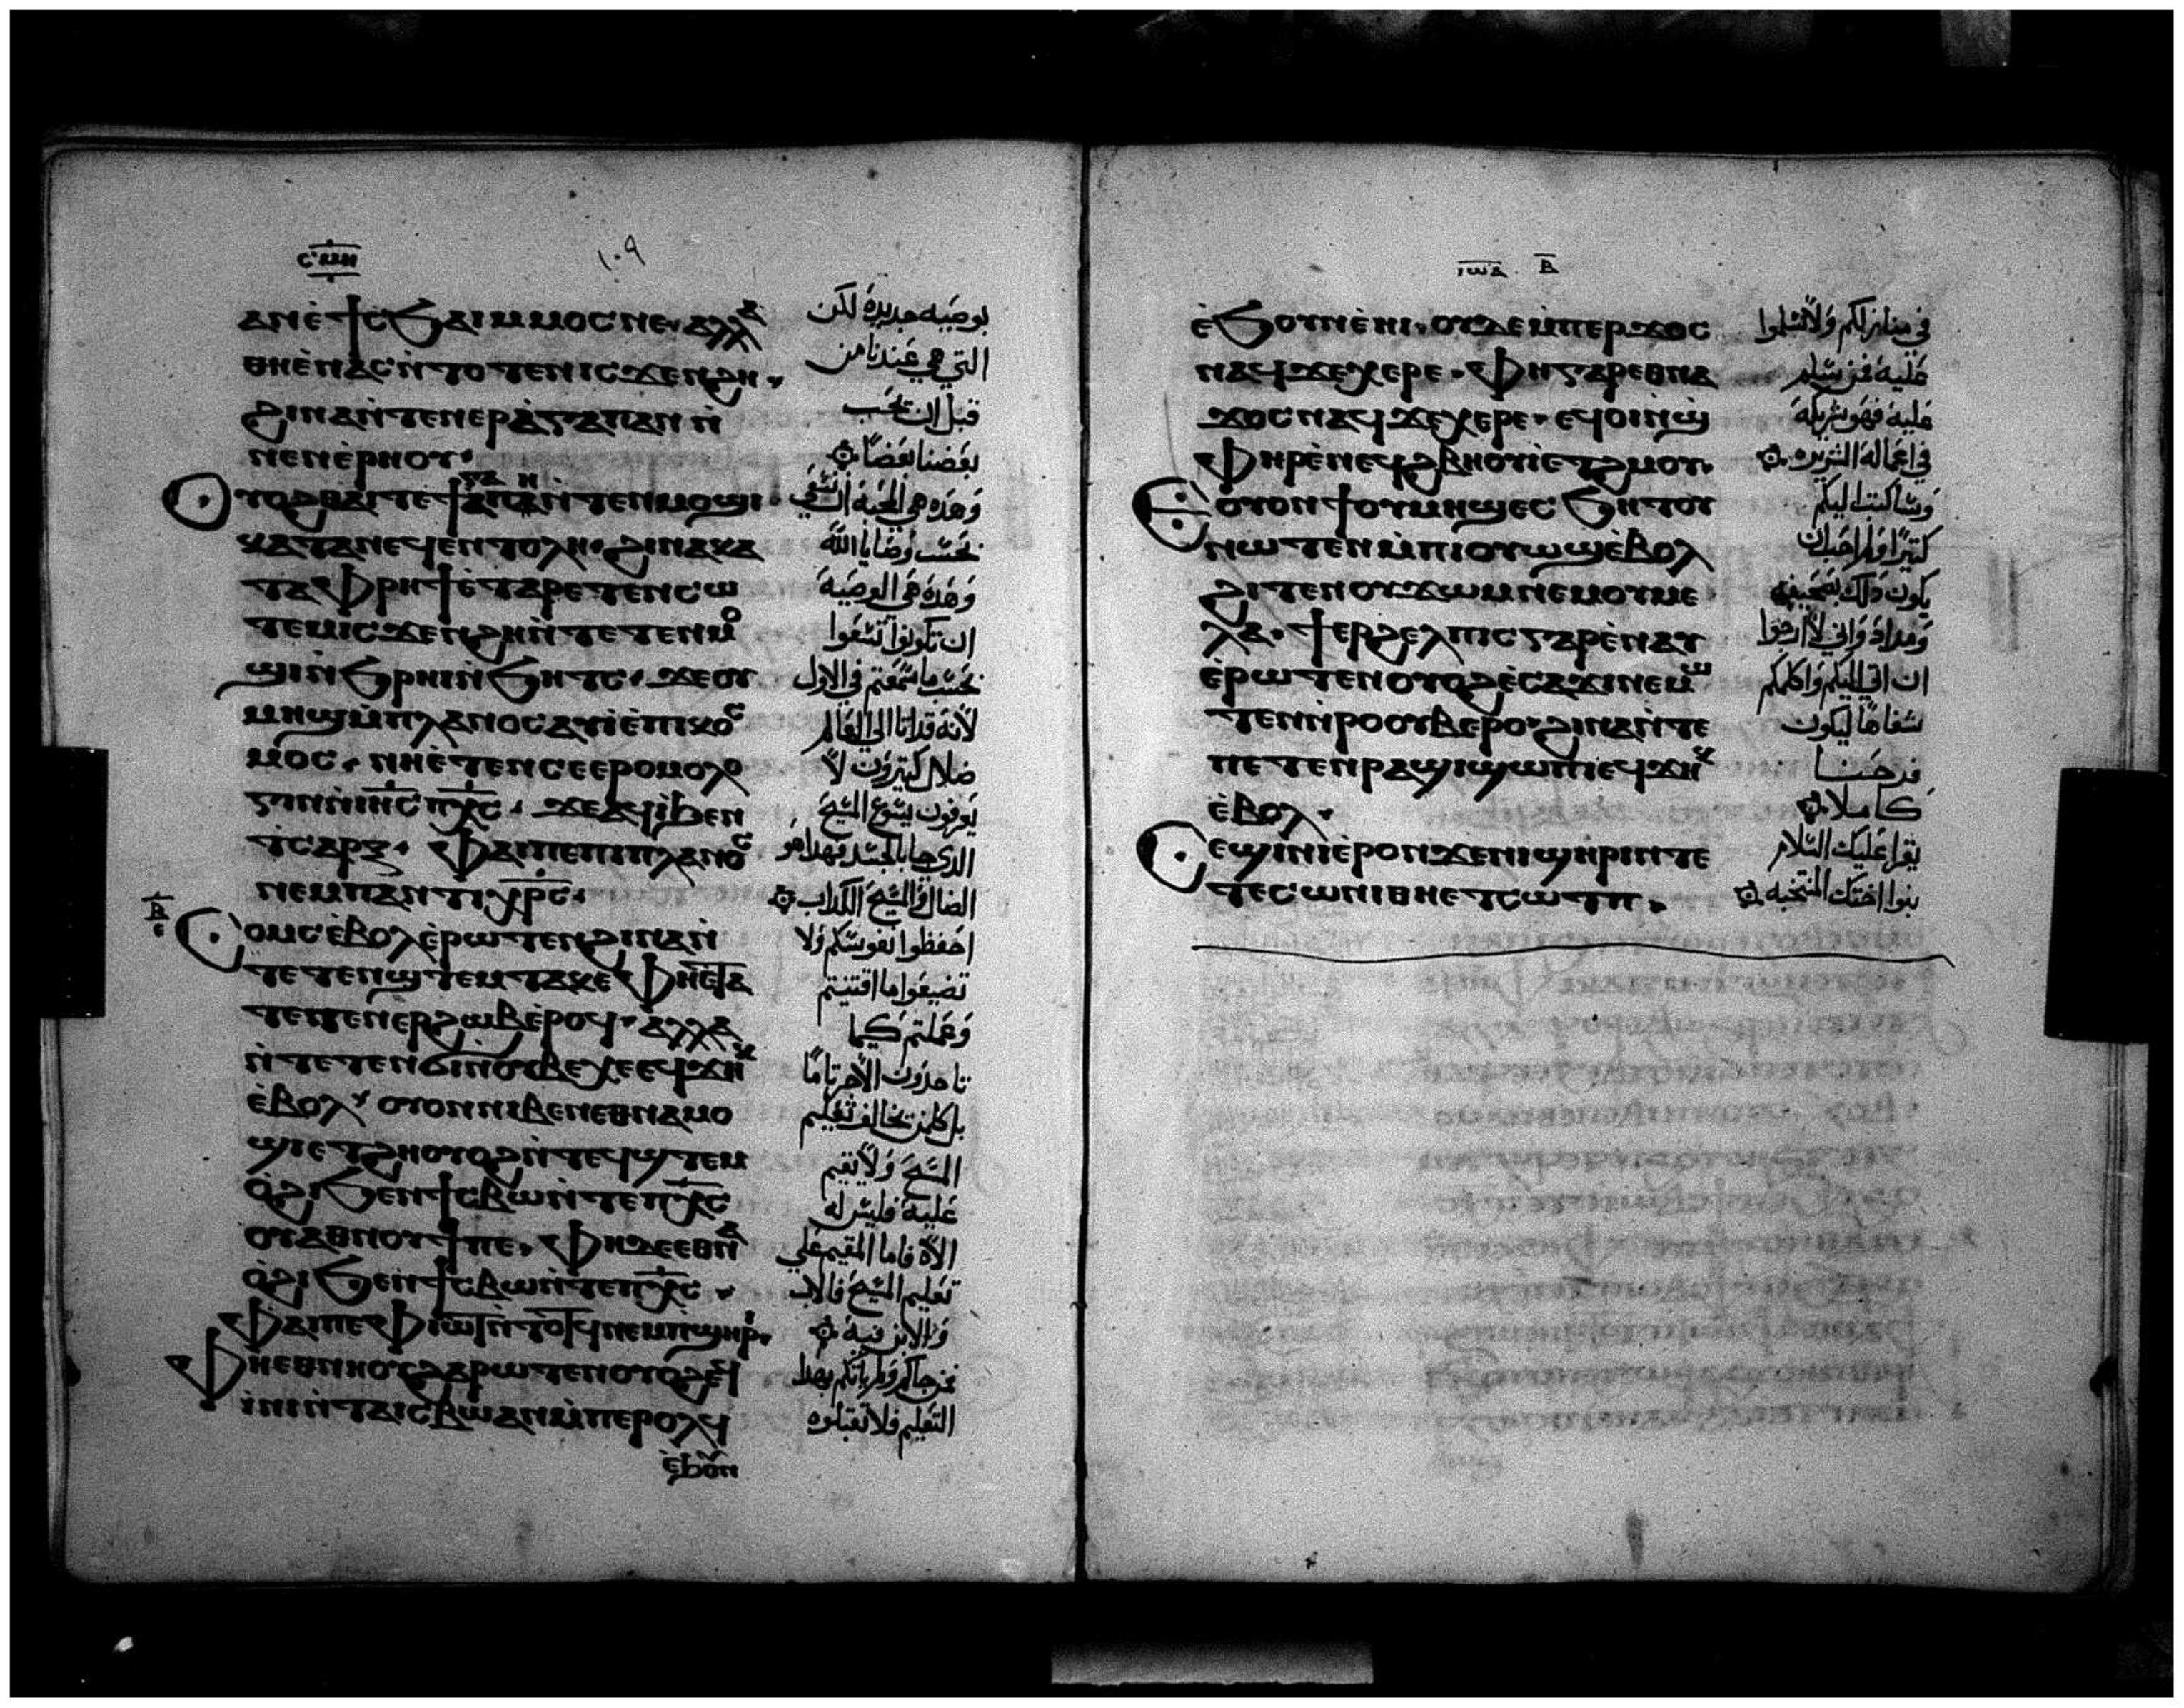 ⲥ̅ⲙ̅ⲏ̅
١٠٩
ⲁⲛⲉ̀ϯⲥϧⲁⲓⲙⲙⲟⲥⲛⲉ· ⲁⲗⲗⲁ
ⲑⲏⲉ̀ⲛⲁⲥⲛ̀ⲧⲟⲧⲉⲛⲓⲥϫⲉⲛϩⲏ·
ϩⲓⲛⲁⲛ̀ⲧⲉⲛⲉⲣⲁ̀ⲅⲁⲡⲁⲛⲛ̀
ⲛⲉⲛⲉ̀ⲣⲏⲟⲩ·
ⲟⲩⲟϩⲑⲁⲓⲧⲉϯⲁ̀ⲅⲁⲡⲏⲛ̀ⲧⲉⲛⲙⲟϣⲓ·
ⲕⲁⲧⲁⲛⲉϥⲉⲛⲧⲟⲗⲏ· ϩⲓⲛⲁⲕⲁ
ⲧⲁⲫⲣⲏϯⲉ̀ⲧⲁⲣⲉⲧⲉⲛⲥⲱ
ⲧⲉⲙⲓⲥϫⲉⲛϩⲏⲛ̀ⲧⲉⲧⲉⲛⲙⲟ
ϣⲓⲛ̀ϧⲣⲏⲓⲛ̀ϧⲏⲧⲥ· ϫⲉⲟⲩ
ⲙⲏϣⲙ̀ⲡⲗⲁⲛⲟⲥⲁⲩⲓ̀ⲉ̀ⲡⲓⲕⲟⲥ
ⲙⲟⲥ· ⲛⲏⲉ̀ⲧⲉⲛⲥⲉⲉⲣⲟⲙⲟⲗⲟ
ⲅⲓⲛⲛ̀ⲓⲏ̅ⲥ̅ⲡⲭ̅ⲥ̅· ϫⲉⲁϥⲓ̀ϧⲉⲛ
ⲧⲥⲁⲣⲝ· ⲫⲁⲓⲡⲉⲡⲓⲡⲗⲁⲛⲟⲥ
ⲛⲉⲙⲡⲁⲛⲧⲓⲭ̅ⲣ̅ⲥ̅·
ⲃ̅
ⲉ
ⲥⲟⲙⲥⲉ̀ⲃⲟⲗⲉ̀ⲣⲱⲧⲉⲛϩⲓⲛⲁⲛ̀
ⲧⲉⲧⲉⲛϣⲧⲉⲙⲧⲁⲕⲉⲫⲏⲉ̀ⲧⲁ
ⲧⲉⲧⲉⲛⲉⲣϩⲱⲃⲉ̀ⲣⲟϥ· ⲁⲗⲗⲁ
ⲛ̀ⲧⲉⲧⲉⲛϭⲓⲛ̀ⲟⲩⲃⲉⲭⲉⲉϥϫⲏⲕ
ⲉ̀ⲃⲟⲗ· ⲟⲩⲟⲛⲛⲓⲃⲉⲛⲉⲑⲛⲁⲙⲟ
ϣⲓⲉⲧϩⲏⲟⲩⲟϩⲛ̀ⲧⲉϥϣⲧⲉⲙ
ⲟ̀ϩⲓϧⲉⲛϯⲥⲃⲱⲛ̀ⲧⲉⲡⲭ̅ⲥ̅
ⲟⲩⲁⲑⲛⲟⲩϯⲡⲉ· ⲫⲏⲇⲉⲉⲑⲛⲁ
ⲟ̀ϩⲓϧⲉⲛϯⲥⲃⲱⲛ̀ⲧⲉⲡⲭ̅ⲥ̅·
ⲫⲁⲓⲡⲉⲫⲓⲱⲧⲛ̀ⲧⲟⲧϥⲛⲉⲙⲡϣⲏⲣⲓ·
ⲫⲏⲉⲑⲛⲏⲟⲩϩⲁⲣⲱⲧⲉⲛⲟⲩⲟϩⲉϥ
ⲓⲛⲓⲛ̀ⲧⲁⲓⲥⲃⲱⲁⲛⲙ̀ⲡⲉⲣⲟⲗϥ
ⲉ̀ϧⲟⲩⲛ
بوصيه جديدة لكن
التي هي عندنا من
قبل ان نحب
بعضنا بعضاً
وهذه هي المحبة ان نسعي
بحسب وصايا الله
وهذه هي الوصية
ان تكونوا تسعوا
بحسب ما سمعتم في الاول
لأنه قد اتا الي العالم
ضلال كثيرون لا
يعرفون يسوع المسيح
الذي جا بالجسد فهذا هو
الضال والمسيح الكداب
احفظوا نفوسكم ولا
تضيعوا ما اقتنيتم
وعملتم كيما
تاخدون الأجر تاماً
بل كل من تخالف تعليم
المسيح ولا يقيم
عليه فليس له
الاه فاما المقيم علي
تعليم المسيح فالاب
والابن فيه
فمن جاكم ولم ياتكم بهذا
التعليم فلا تقبلوه
ⲓ̅ⲱ̅ⲁ̅ · ⲃ̅
ⲉ̀ϧⲟⲩⲛⲉ̀ⲏⲓ· ⲟⲩⲇⲉⲙ̀ⲡⲉⲣϫⲟⲥ
ⲛⲁϥϫⲉⲭⲉⲣⲉ· ⲫⲏⲅⲁⲣⲉⲑⲛⲁ
ϫⲟⲥⲛⲁϥϫⲉⲭⲉⲣⲉ· ⲉϥⲟⲓⲛ̀ϣ
ⲫⲏⲣⲉ̀ⲛⲉϥϩⲃⲏⲟⲩⲓ̀ⲉⲧϩⲱⲟⲩ·
ⲉⲟⲩⲟⲛϯⲟⲩⲙⲏϣⲉⲥϧⲏⲧⲟⲩ
ⲛⲱⲧⲉⲛⲙ̀ⲡⲓⲟⲩⲱϣⲉ̀ⲃⲟⲗ
ϩⲓⲧⲉⲛⲟⲩϫⲱⲙⲛⲉⲙⲟⲩⲙⲉ
ⲗⲁ· ϯⲉⲣϩⲉⲗⲡⲓⲥⲅⲁⲣⲉ̀ⲛⲁⲩ
ⲉ̀ⲣⲱⲧⲉⲛⲟⲩⲟϩⲉ̀ⲥⲁϫⲓⲛⲉⲙⲱ
ⲧⲉⲛⲛ̀ⲣⲟⲟⲩⲃⲉⲣⲟ· ϩⲓⲛⲁⲛ̀ⲧⲉ
ⲡⲉⲧⲉⲛⲣⲁϣⲓϣⲱⲡⲓⲉϥϫⲏⲕ
ⲉ̀ⲃⲟⲗ·
ⲥⲉϣⲓⲛⲓⲉ̀ⲣⲟⲛϫⲉⲛⲓϣⲏⲣⲓⲛⲧⲉ
ⲧⲉⲥⲱⲛⲓⲑⲏⲉⲧⲥⲱⲧⲡ·
في منازلكم ولا تسلموا
عليه فمن سلم
عليه فهو شريكه
في اعماله الشريره
وساكتب اليكم
كثيرًا ولم احب ان
يكون ذلك بصحيفه
ومداد واني لأرجوا
ان اتي اليكم واكلمكم
شفاهًا ليكون
فرحنا
كاملا
يقرا عليك السلام
بنوا اختك المنتخبه